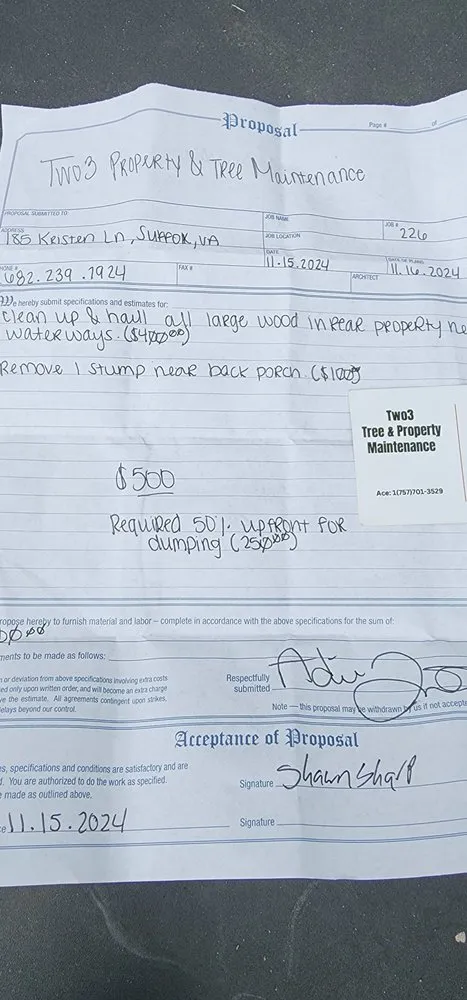 Proposal
Page # of
Two3 Property & Tree Maintenance
PROPOSAL SUBMITTED TO
JOB NAME
JOB #
226
ADDRESS
185 Kristen Ln, Suffok, VA
JOB LOCATION
DATE
11.15.2024
11.16.2024
HONE #
682.239.1924
FAX #
ARCHITECT
We hereby submit specifications and estimates for:
clean up & haul all large wood in rear property ne
waterways. ($400.00)
Remove 1 stump near back porch. ($100)
Two3
Tree & Property
Maintenance
Ace: 1(757)701-3529
$500
Required 50% upfront for
dumping (250.00)
ropose hereby to furnish material and labor – complete in accordance with the above specifications for the sum of:
ments to be made as follows:
n or deviation from above specifications involving extra costs
ed only upon written order, and will become an extra charge
ve the estimate. All agreements contingent upon strikes,
elays beyond our control.
Respectfully
submitted
Note — this proposal may be withdrawn by us if not accepte
Acceptance of Proposal
s, specifications and conditions are satisfactory and are
d. You are authorized to do the work as specified.
e made as outlined above.
Signature Shawn Sharp
e 11.15.2024
Signature